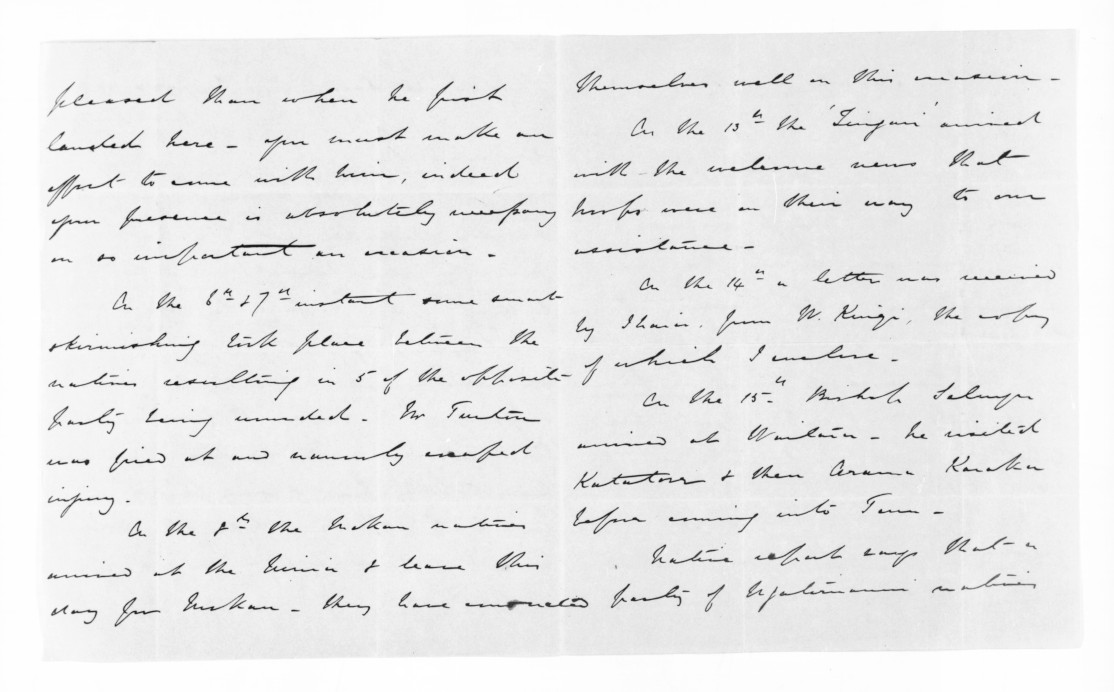 pleased than when he first
landed here – you must make an
effort to come with him, indeed
your presence is absolutely necessary
on so important an occasion –
On the 6th & 7th instant some smart
skirmishing took place between the
natives resulting in 5 of the opposite
party being wounded – Mr Turton
was fired at and narrowly escaped
injury.
On the 8th the Mokau natives
arrived at the Ninia & leave this
day for Mokau – they have conducted
themselves well on this occasion –
On the 13th the 'Zingari' arrived
with the welcome news that
troops were on their way to our
assistance –
On the 14th a letter was received
by Ihaia, from W. Kingi, the copy
of which I enclose –
On the 15th Bishop Selwyn
arrived at Waitara – he visited
Katatore & then Arama Karaka
before coming into Town –
Native report says that a
party of Ngatimaru natives